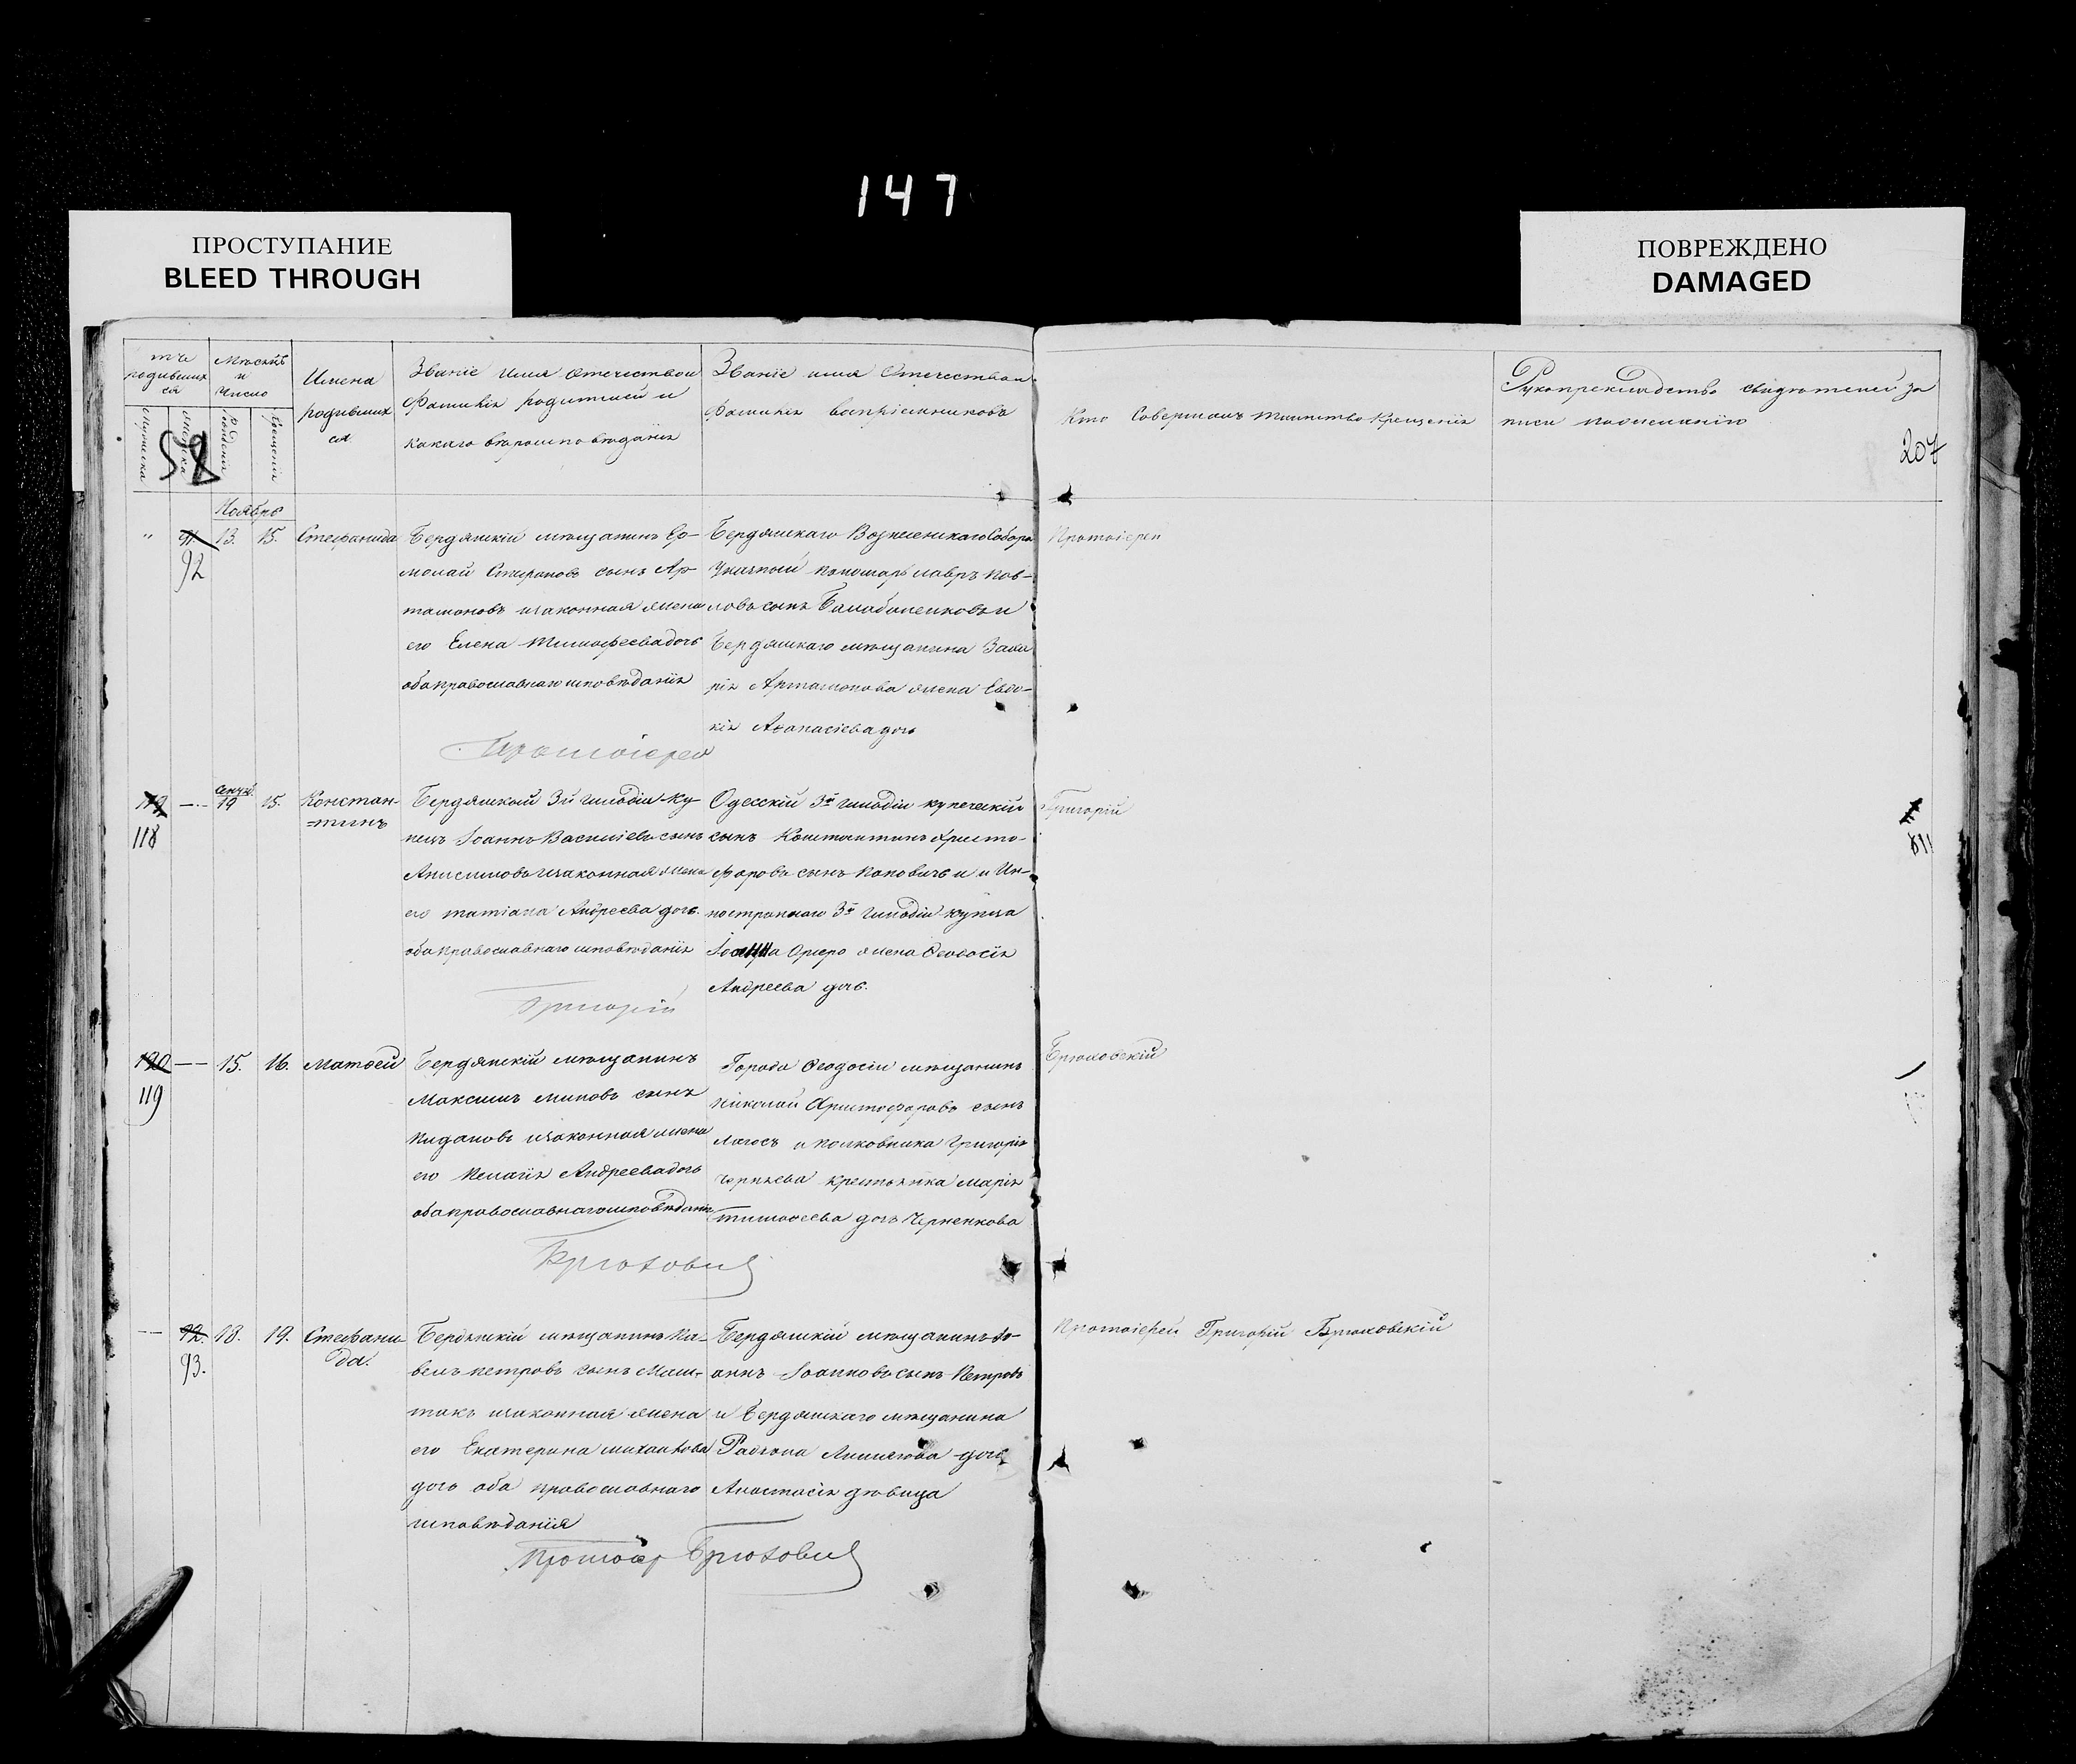 147
ПРОСТУПАНИЕ
BLEED THROUGH
ПОВРЕЖДЕНО
DAMAGED
родивших
ся
Мѣсяцъ
и
Число
Имена
родивших
ся
Званіе имя отечество и
Фамилія родителей и
какаго вѣроисповѣданія
Званіе имя Отечество и
Фамилія воспріемниковъ
Кто Совершалъ таинство Крещенія
Рукоприкладство свидѣтелей за
писи по желанію
Мужска
Женска
Рожденія
Крещенія
207
Ноябрь
" 91. 13. 15. Стефанида
92
Бердянскій мѣщанинъ Ер-
молай Стефановъ сынъ Ар-
тамоновъ и законная жена
его Елена Тимофеева дочь
оба православнаго исповѣданія
Протоіерей
Бердянскаго Вознесенскаго Собора
Указный пономарь Лавръ Пав-
ловъ сынъ и
Бердянскаго мѣщанина Заха
рія Артамонова жена Евдо-
кія Аѳанасіева дочь
Протоіерей
118
19 15. Констан-
=тинъ
Бердянскій 3й гильдіи ку-
пецъ Іоаннъ Василіевъ сынъ
Анисимовъ и законная жена
его Татіана Андреева дочь.
оба православнаго исповѣданія
Григорій
Одесскій 3й гильдіи купеческій
сынъ Константинъ Христо-
форовъ сынъ Поповичъ и Ин-
ностраннаго 3й гильдіи купца
жена Ѳеодосія
Андреева дочь.
Григорій
118
120 — 15. 16. Матѳей
119
Бердянскій мѣщанинъ
Максимъ сынъ
и законная жена
его Пелагія Андреева дочь
оба православнаго исповѣданія
Брюховскій
Города Ѳеодосіи мѣщанинъ
Николай Христофоровъ сынъ
и полковника Григорія
крестьянка Марія
Тимоѳеева дочь Черненкова
Брюховскій
— 92. 18. 19. Стефани-
да.
93.
Бердянскій мѣщанинъ Па-
велъ Петровъ сынъ
и законная жена
его Екатерина Михайлова
дочь оба православнаго
исповѣданія
Протоіер Брюховскій
Бердянскій мѣщанинъ Іо-
аннъ Іоанновъ сынъ Петровъ
и Бердянскаго мѣщанина
дочь
Анастасія дѣвица
Протоіерей Григорій Брюховскій